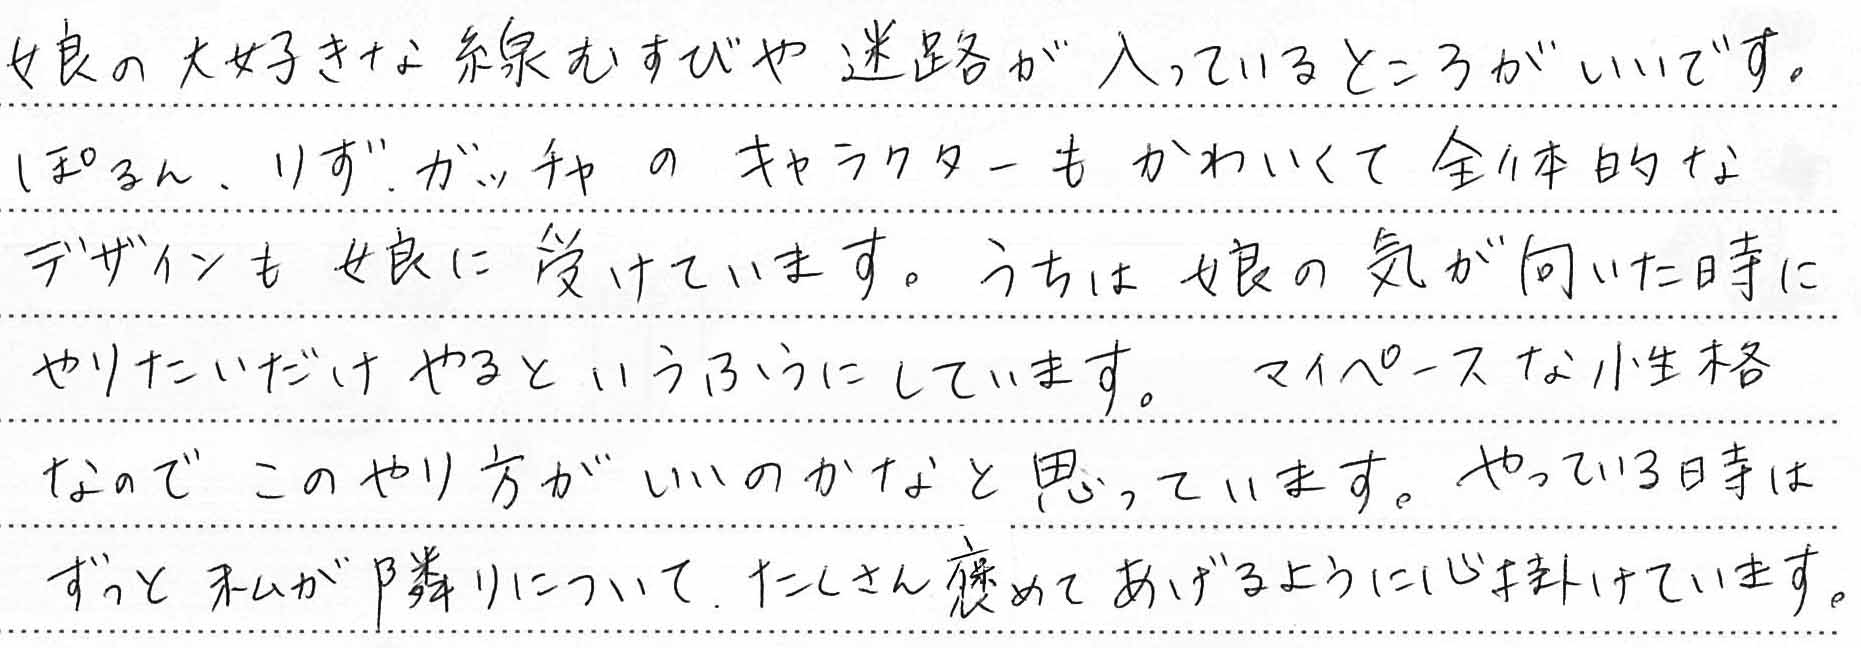 娘の大好きな線むすびや迷路が入っているところがいいです。
ぽるん、りず、ガッチャのキャラクターもかわいくて全体的な
デザインも娘に受けています。うちは娘の気が向いた時に
やりたいだけやるというふうにしています。マイペースな性格
なのでこのやり方がいいのかなと思っています。やっている時は
ずっと私が隣りについて、たくさん褒めてあげるように心掛けています。